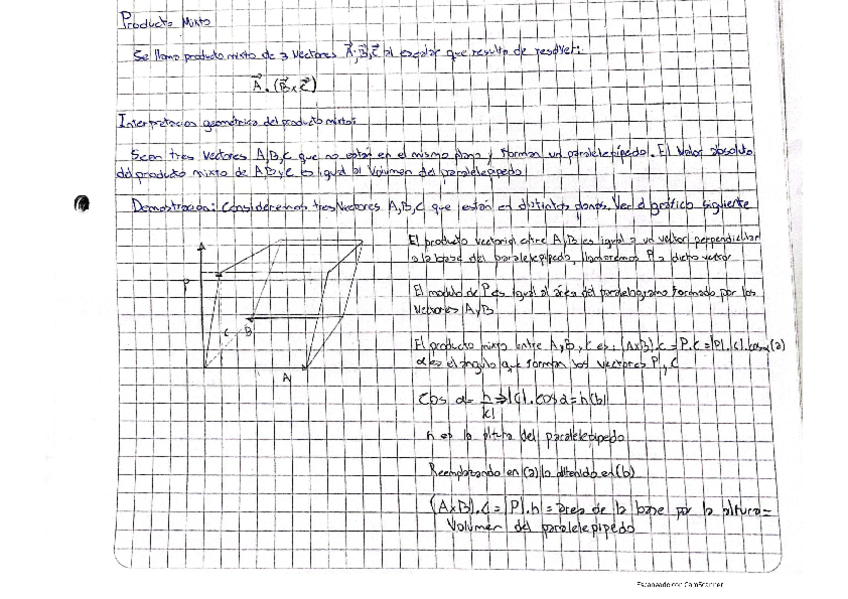 Producto Mixto
Se llama producto mixto de 3 vectores A,B,C al escalar que resulta de resolver:
A . (B x C)
Interpretacion geométrica del producto mixto:
Sean tres vectores A,B,C que no estan en el mismo plano y forman un paralelepípedo. El valor absoluto
del producto mixto de A,B y C es igual al volumen del paralelepipedo
Demostración: Consideremos tres vectores A,B,C que estan en distintos planos. Ver el gráfico siguiente
El producto vectorial entre A,B es igual a un vector perpendicular
a la base del paralelepipedo, llamaremos P a dicho vector
El modulo de P es igual al área del paralelogramo formado por los
vectores A,B
El producto mixto entre A,B,C es: (AxB).C = P.C = |P|.|C|.cosα(a)
α es el ángulo que forman los vectores P, C
P
C
B
A
Cos α = h => |C|.cosα = h(b)
|C|
h es la altura del paralelepipedo
Reemplazando en (a) lo obtenido en (b)
(AxB).C = |P|.h = área de la base por la altura =
Volumen del paralelepipedo
Escaneado con CamScanner